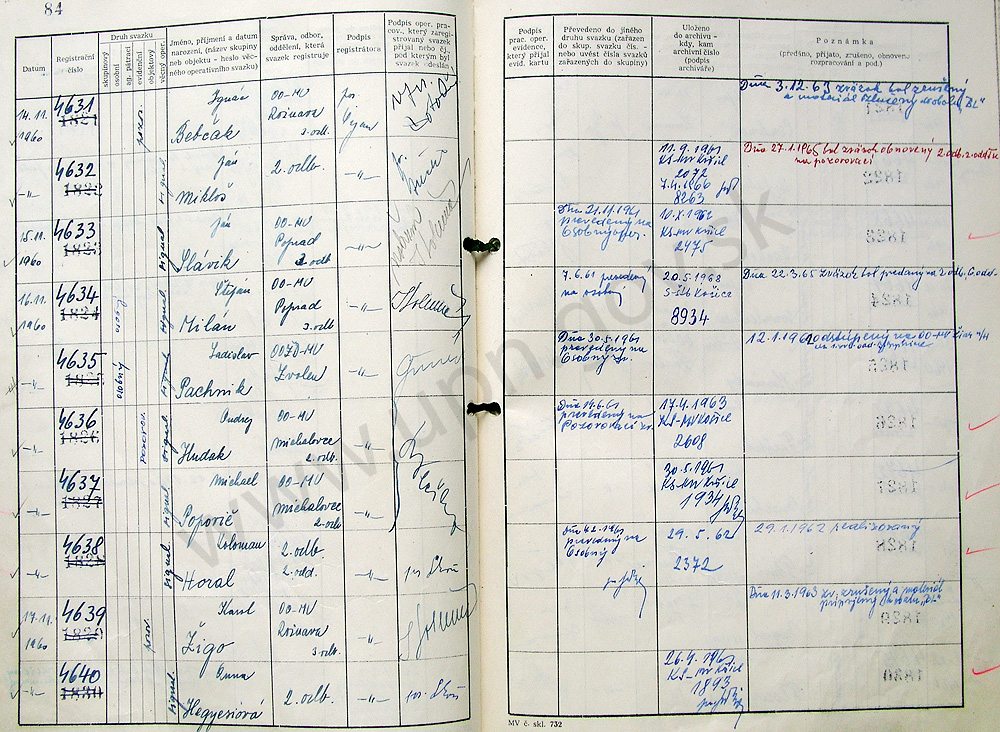 84
Datum
Registrační číslo
Druh svazku
skupinový
osobní
ag. pátrací
evidenční
objektový
věcný oper.
Jméno, příjmení a datum narození, (název skupiny neb objektu - heslo věcného operativního svazku)
Správa, odbor, oddělení, která svazek registruje
Podpis registrátora
Podpis oper. pracov., který zaregistrovaný svazek přijal nebo čj. pod kterým byl svazek odeslán
Podpis prac. oper. evidence, který přijal evid. kartu
Převedeno do jiného druhu svazku (zařazen do skup. svazku čís. - nebo uvést čísla svazků zařazených do skupiny)
Uloženo do archivu - kdy, kam archivní číslo (podpis archiváře)
Poznámka
(předáno, přijato, zrušeno, obnoveno, rozpracování a pod.)
14.11. 1960
4631
pozor.
Ignác Bebčák
OO-MV Rožňava 3. odb.
Dňa 3.12.63 zväzok bol zrušený
a materiál
-"-
4632
signal.
Ján Mikloš
2. odb.
-"-
11.9.1961
KS-MV Košice
2072
7.4.1966
8263
Dňa 27.1.1965 bol zväzok obnovený 2. odb. 2. odd.
na pozorovací
15.11. 1960
4633
signal.
Ján Slávik
OO-MV Poprad 2. odb
-"-
Dňa 21.11.1961
prevedený na
Osobný
10.X.1962
KS-MV Košice
2475
16.11. 1960
4634
osob.
signal.
Štefan Milán
OO-MV Poprad 3. odb
-"-
7.6.61 prevedený
na osobný
20.5.1968
Košice
8934
Dňa 22.3.65 zväzok bol predaný na 2. odb. 6. odd.
-"-
4635
osobný
signal.
Ladislav Pachnik
Zvolen
-"-
Dňa 30.5.1961
prevedený na
Osobný zv.
12.1.1961 odstúpený na OO-MV
-"-
4636
pozorov.
signal.
Andrej Hudak
OO-MV Michalovce 2. odb.
-"-
Dňa 19.6.61
prevedený na
Pozorovací zv.
17.4.1963
KS-MV Košice
2608
-"-
4637
signal.
Michael Popovič
OO-MV Michalovce 2. odb
-"-
30.5.1961
KS-MV Košice
1934
-"-
4638
signal.
Koloman Horal
2. odb. 2. odd.
-"-
prevedený na
Osobný
29.5.62
2372
29.1.1962 realizovaný
17.11. 1960
4639
pozor.
Karol Žigo
OO-MV Rožňava 3. odb.
-"-
Dňa 11.3.1963 zv. zrušený a materiál
pripojený
-"-
4640
signal.
Anna Hegyesiová
2. odb.
-"-
26.4.1961
KS-MV Košice
1893
MV č. skl. 732
www.upn.gov.sk